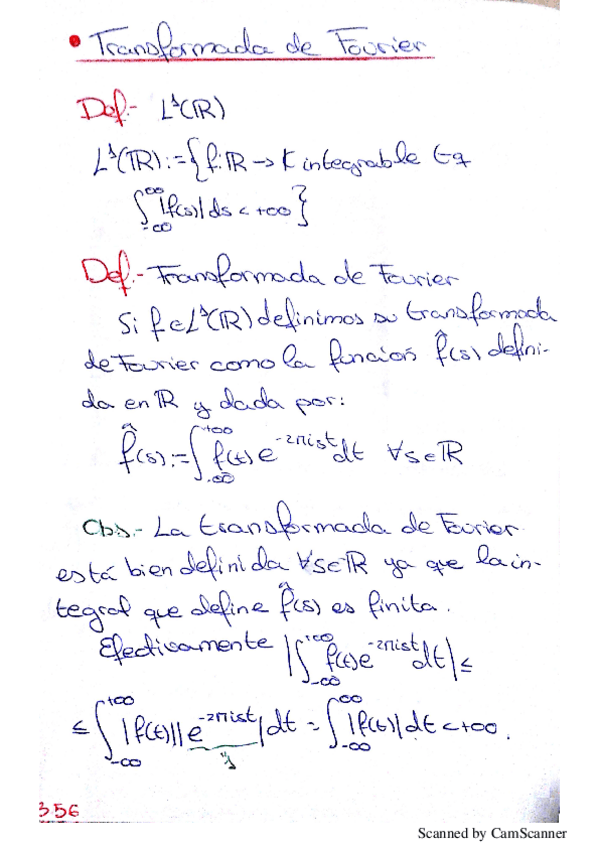 • Transformada de Fourier
Def.- L¹(ℝ)
L¹(ℝ):={f:ℝ→K integrable tq
∫_{-∞}^{∞}|f(s)|ds<+∞}
Def.- Transformada de Fourier
Si f∈L¹(ℝ) definimos su transformada
de Fourier como la función f̂(s) defini-
da en ℝ y dada por:
f̂(s):=∫_{-∞}^{+∞} f(t)e^{-2πist}dt ∀s∈ℝ
Obs.- La transformada de Fourier
está bien definida ∀s∈ℝ ya que la in-
tegral que define f̂(s) es finita.
Efectivamente |∫_{-∞}^{+∞} f(t)e^{-2πist}dt|≤
≤∫_{-∞}^{+∞}|f(t)||e^{-2πist}|dt=∫_{-∞}^{∞}|f(t)|dt<+∞.
"1
356
Scanned by CamScanner